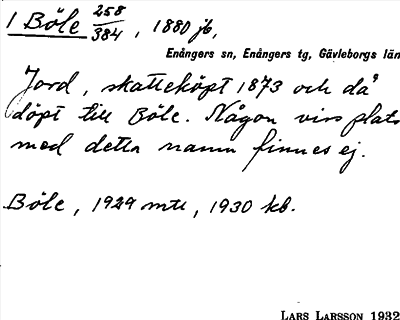 1 Böle 258/384, 1880 jb,
Enångers sn, Enångers tg, Gävleborgs län
Jord, skatteköpt 1873 och då
döpt till Böle. Någon viss plats
med detta namn finnes ej.
Böle, 1929 mtl, 1930 kb.
LARS LARSSON 1932